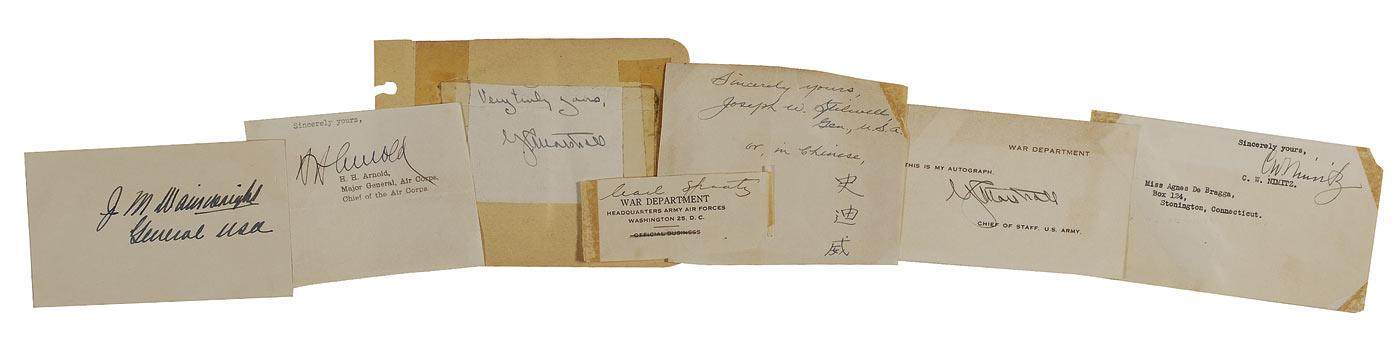 J M Wainwright
General USA
Sincerely yours,
H H Arnold
H. H. Arnold,
Major General, Air Corps,
Chief of the Air Corps.
Very truly yours,
G C Marshall
Carl Spaatz
WAR DEPARTMENT
HEADQUARTERS ARMY AIR FORCES
WASHINGTON 25, D. C.
OFFICIAL BUSINESS
Sincerely yours,
Joseph W. Stilwell,
Gen., U.S.A.
or, in Chinese,
史
迪
威
WAR DEPARTMENT
THIS IS MY AUTOGRAPH.
G C Marshall
CHIEF OF STAFF, U. S. ARMY.
Sincerely yours,
C W Nimitz
C. W. NIMITZ.
Miss Agnes De Bragga,
Box 124,
Stonington, Connecticut.